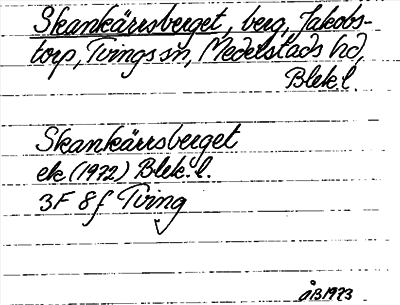 Skankärrsberget, berg, Jakobs-
torp, Tvings sn, Medelstads hd,
Blek. l.
Skankärrsberget
ek (1972) Blek. l.
3F 8f Tving
ÅB 1973